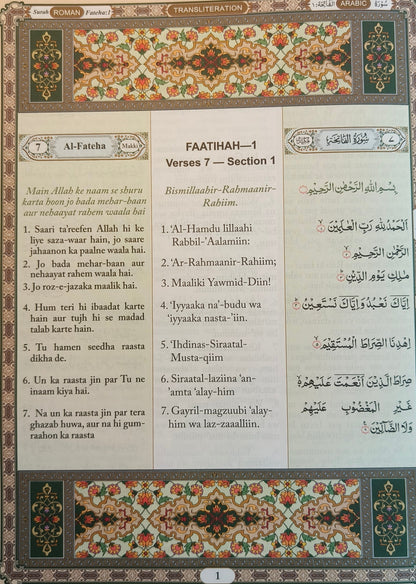 Surah ROMAN Fateha:1
TRANSLITERATION
سُورَة ARABIC الفَاتِحَة:١
7 Al-Fateha Makki
Main Allah ke naam se shuru
karta hoon jo bada mehar-baan
aur nehaayat rahem waala hai
1. Saari ta'reefen Allah hi ke
liye saza-waar hain, jo saare
jahaanon ka paalne waala hai.
2. Jo bada mehar-baan aur
nehaayat rahem waala hai.
3. Jo roz-e-jazaka maalik hai.
4. Hum teri hi ibaadat karte
hain aur tujh hi se madad
talab karte hain.
5. Tu hamen seedha raasta
dikha de.
6. Un ka raasta jin par Tu ne
inaam kiya hai.
7. Na un ka raasta jin par tera
ghazab huwa, aur na hi gum-
raahon ka raasta
FAATIHAH—1
Verses 7 — Section 1
Bismillaahir-Rahmaanir-
Rahiim.
1. ‘Al-Hamdu lillaahi
Rabbil-’Aalamiin:
2. ‘Ar-Rahmaanir-Rahiim;
3. Maaliki Yawmid-Diin!
4. ‘Iyyaaka na’-budu wa
‘iyyaaka nasta-’iin.
5. ‘Ihdinas-Siraatal-
Musta-qiim
6. Siraatal-laziina ‘an-
‘amta ‘alay-him
7. Gayril-magzuubi ‘alay-
him wa laz-zaaalliin.
٧ سُوْرَةُ الْفَاتِحَةِ
بِسْمِ اللهِ الرَّحْمٰنِ الرَّحِيْمِ
اَلْحَمْدُ لِلّٰهِ رَبِّ الْعٰلَمِيْنَ ١
الرَّحْمٰنِ الرَّحِيْمِ ٢
مٰلِكِ يَوْمِ الدِّيْنِ ٣
اِيَّاكَ نَعْبُدُ وَ اِيَّاكَ نَسْتَعِيْنُ ٤
اِهْدِنَا الصِّرَاطَ الْمُسْتَقِيْمَ ٥
صِرَاطَ الَّذِيْنَ اَنْعَمْتَ عَلَيْهِمْ ٦
غَيْرِ الْمَغْضُوْبِ عَلَيْهِمْ
وَلَا الضَّآلِّيْنَ ٧
1